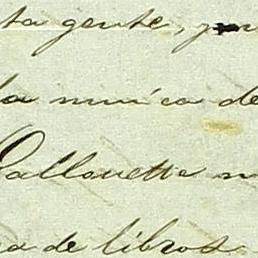 ta gente,
la música de
Pallouette
a de libros